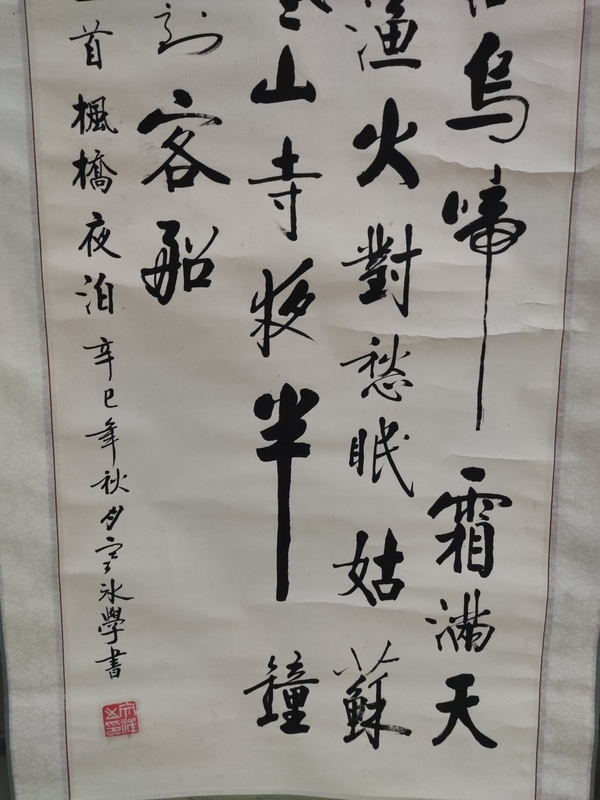 烏啼霜滿天
漁火對愁眠姑蘇
山寺夜半鐘
到客船
首楓橋夜泊辛巳年秋月冰學書